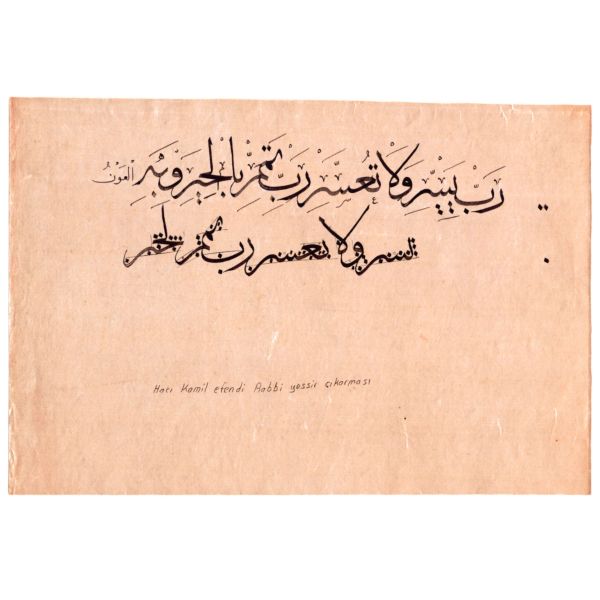 رَبِّ يَسِّرْ وَلَا تُعَسِّرْ رَبِّ تَمِّمْ بِالْخَيْرِ وَبِهِ الْعَوْنُ
يسر ولا تعسر رب تمم بالخير
Hacı Kamil efendi Rabbi yessir çıkarması